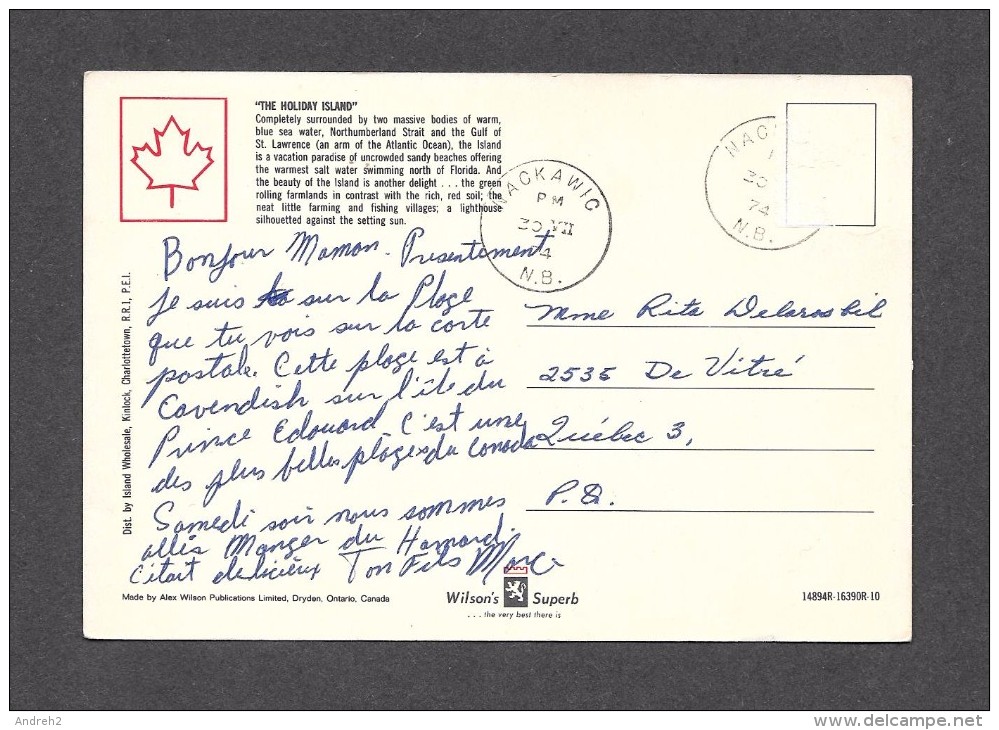 "THE HOLIDAY ISLAND"
Completely surrounded by two massive bodies of warm,
blue sea water, Northumberland Strait and the Gulf of
St. Lawrence (an arm of the Atlantic Ocean), the Island
is a vacation paradise of uncrowded sandy beaches offering
the warmest salt water swimming north of Florida. And
the beauty of the Island is another delight . . . the green
rolling farmlands in contrast with the rich, red soil; the
neat little farming and fishing villages; a lighthouse
silhouetted against the setting sun.
NACKAWIC
PM
30 VII
4
N.B.
NAC
30
74
N.B.
Bonjour Maman. Presentement
je suis sur la Plage
que tu vois sur la carte
postale. Cette plage est à
Cavendish sur l'île du
Prince Edouard. C'est une
des plus belles plages du Canada
Samedi soir nous sommes
allés Manger du Homard.
c'était delicieux Ton Fils Marc
Mme Rita Delarosbil
2535 De Vitré
Québec 3,
P.Q.
Dist. by Island Wholesale, Kinlock, Charlottetown, R.R.1, P.E.I.
Made by Alex Wilson Publications Limited, Dryden, Ontario, Canada
Wilson's Superb
. . . the very best there is
14894R-16390R-10
Andreh2
www.delcampe.net